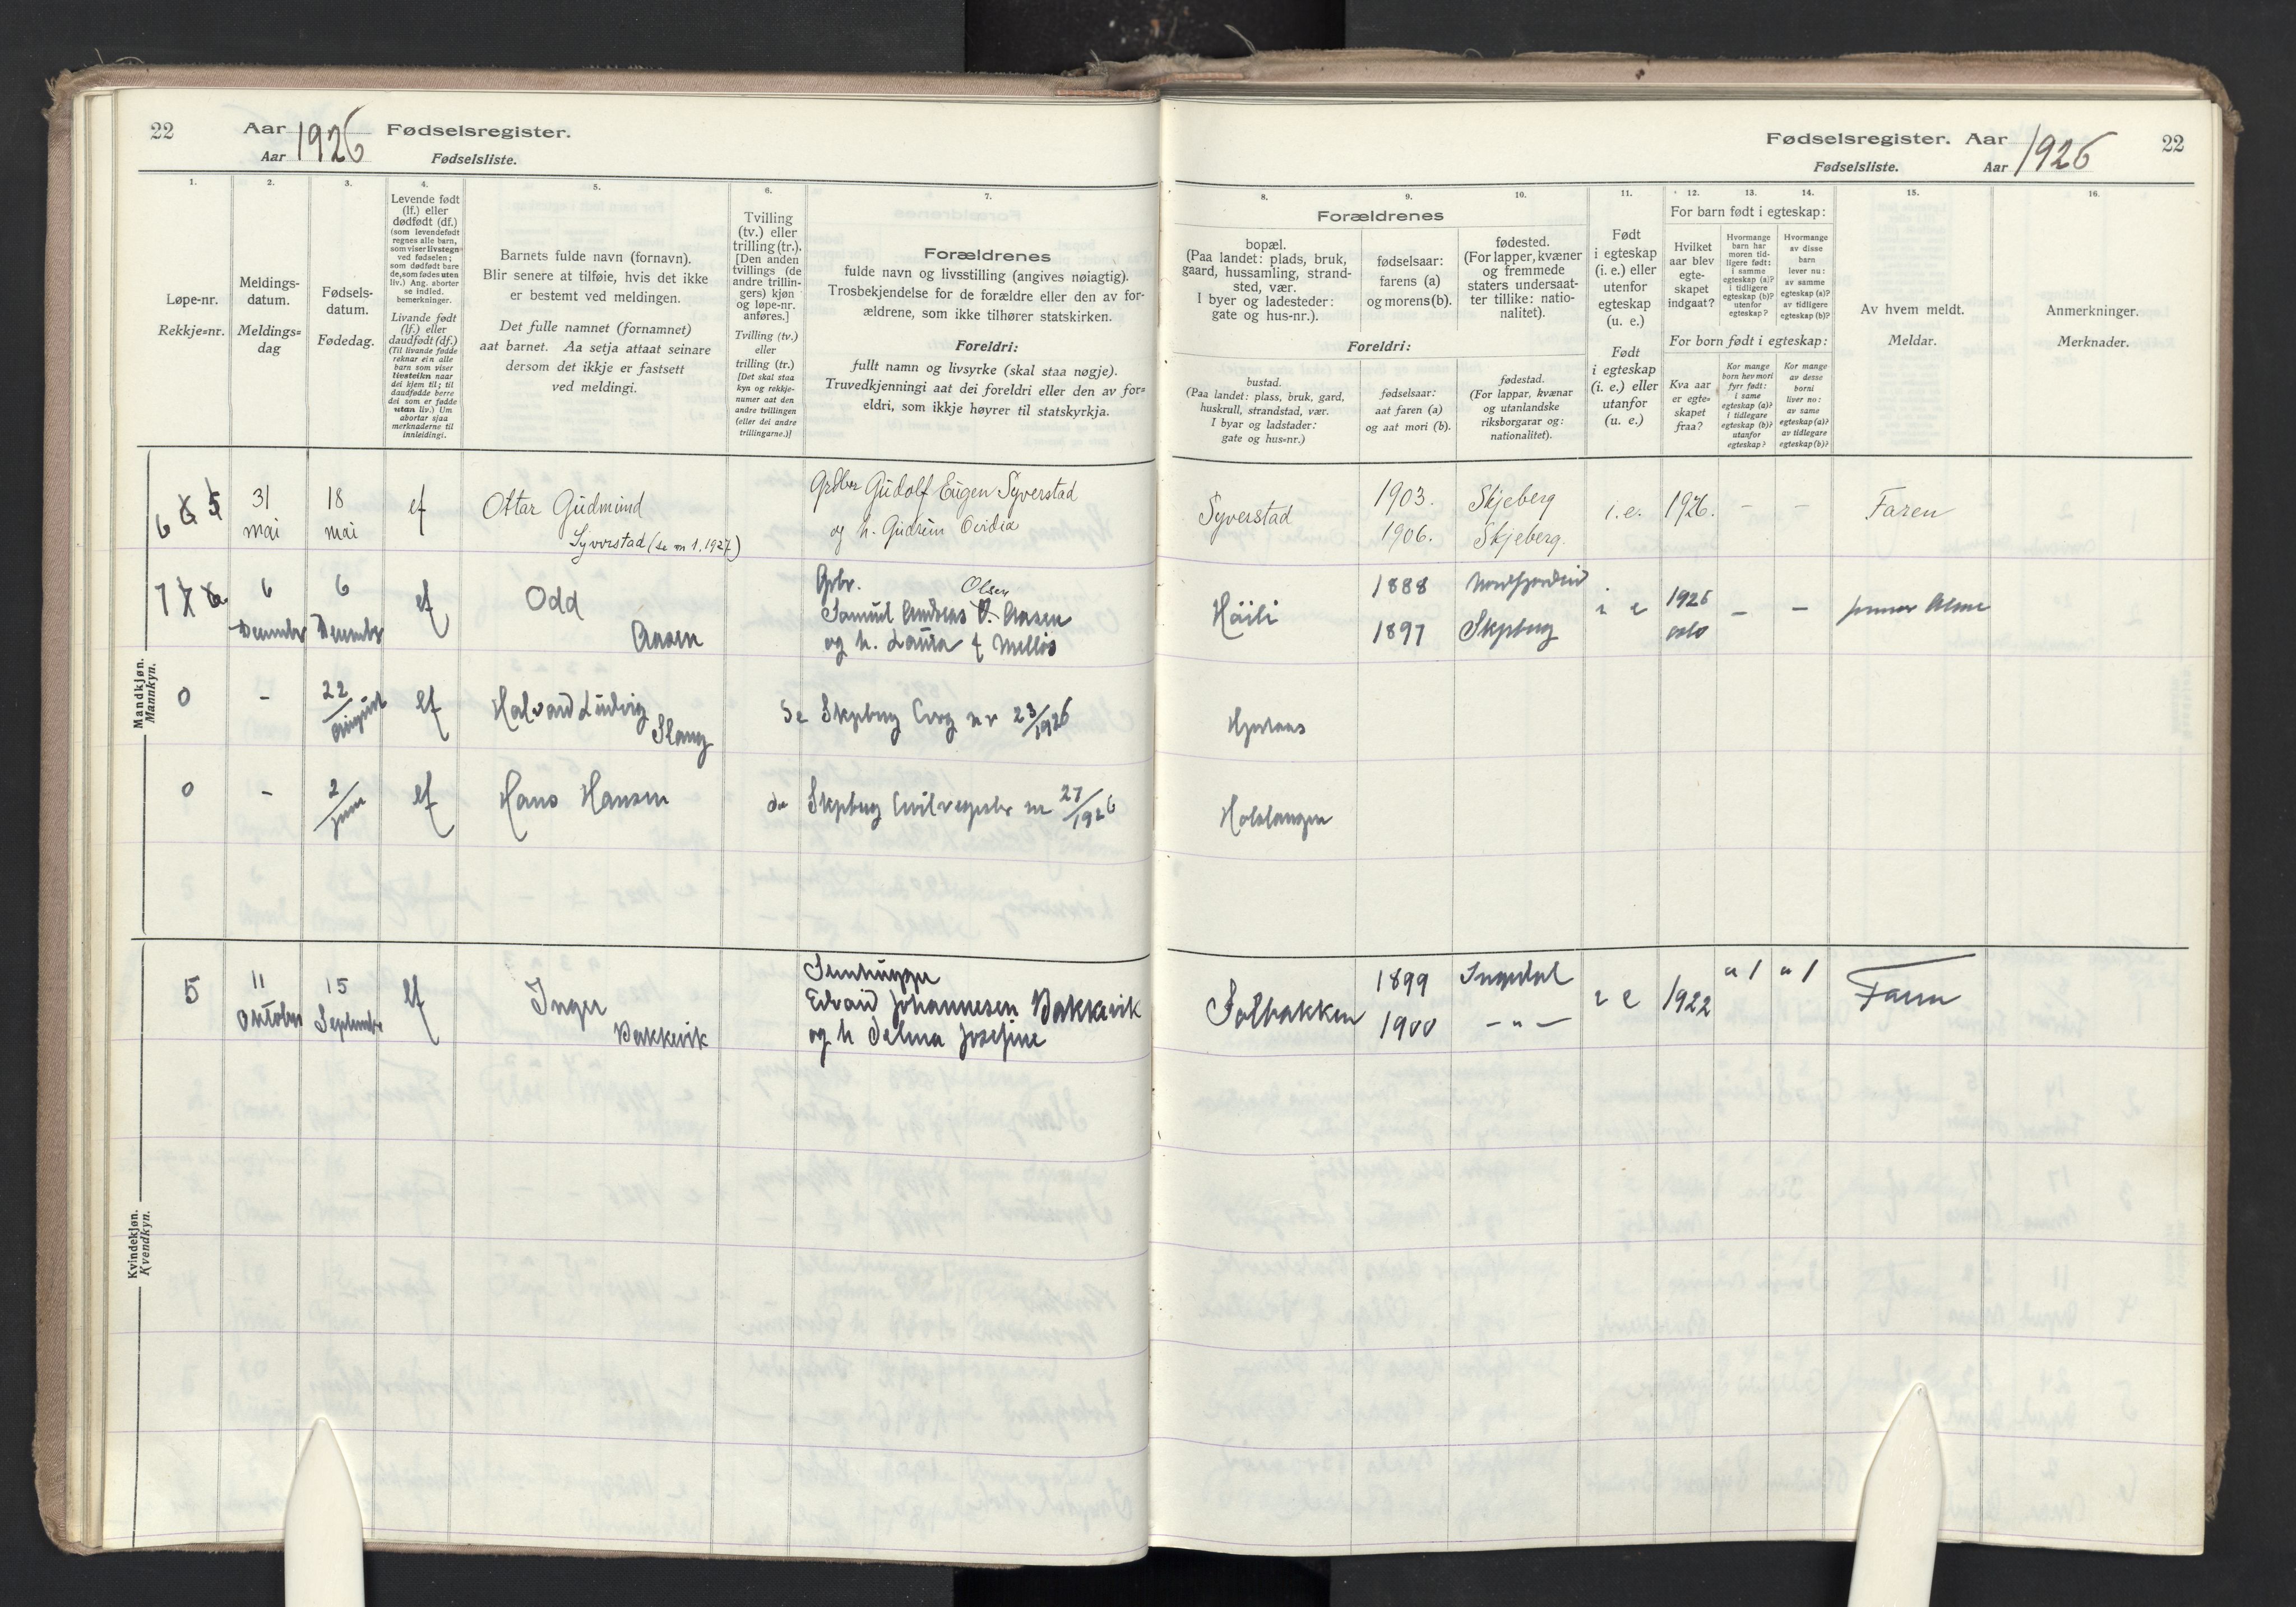 22
Aar 1926 Fødselsregister.
Aar Fødselsliste.
1.
2.
3.
4.
5.
6.
7.
Løpe-nr.
Rekkje=nr.
Meldings-
datum.
Meldings=
dag
Fødsels-
datum.
Fødedag.
Levende født
(lf.) eller
dødfødt (df.)
(som levendefødt
regnes alle barn,
som viser livstegn
ved fødselen;
som dødfødt bare
de, som fødes uten
liv.) Ang. aborter
se indled.
bemerkninger.
Livande født
(lf.) eller
daudfødt (df.)
(Til livande fødde
reknar ein alle
barn som viser
livsteikn naar
dei kjem til; til
daudfødde berre
dei som er fødde
utan liv.) Um
abortar sjaa
merknaderne til
innleidingi.
Barnets fulde navn (fornavn).
Blir senere at tilføie, hvis det ikke
er bestemt ved meldingen.
Det fulle namnet (fornamnet)
aat barnet. Aa setja attaat seinare
dersom det ikkje er fastsett
ved meldingi.
Tvilling
(tv.) eller
trilling (tr.).
[Den anden
tvillings (de
andre trillin-
gers) kjøn
og løpe-nr.
anføres.]
Tvilling (tv.)
eller
trilling (tr.)
[Det skal staa
kyn og rekkje-
numer aat den
andre tvillingen
(eller dei andre
trillingarne.)]
Forældrenes
fulde navn og livsstilling (angives nøiagtig).
Trosbekjendelse for de forældre eller den av for-
ældrene, som ikke tilhører statskirken.
Foreldri:
fullt namn og livsyrke (skal staa nøgje).
Truvedkjenningi aat dei foreldri eller den av for=
eldri, som ikkje høyrer til statskyrkja.
Mandkjøn.
Mannkyn.
6 6 5
31
mai
18
mai
lf
Ottar Gudmund
Syverstad (se nr 1. 1927)
Grdbr Gudolf Eugen Syverstad
og h. Gudrun Ovidia
7
6
December
6
December
lf
Odd
Aasen
Grbr. Olsen
Samuel Andreas Aasen
og h. Laura f Mellös
0
-
22/august
lf
Halvard Ludvig
Slang
Se Skjeberg Civrg nr 23/1926
0
-
2/juni
lf
Hans Hansen
do Skjeberg Civilregister nr 27/1926
Kvindekjøn.
Kvendkyn.
5
11
Oktober
15
September
lf
Inger
Bakkevik
Stenhugger
Edvard Johannesen Bakkevik
og h Selma Josefine
Fødselsregister. Aar 1926 22
Fødselsliste. Aar
8.
9.
10.
11.
12.
13.
14.
15.
16.
Forældrenes
bopæl.
(Paa landet: plads, bruk,
gaard, hussamling, strand-
sted, vær.
I byer og ladesteder:
gate og hus-nr.).
fødselsaar:
farens (a)
og morens (b).
fødested.
(For lapper, kvæner
og fremmede
staters undersaat-
ter tillike: natio-
nalitet).
Foreldri:
bustad.
(Paa landet: plass, bruk, gard,
huskrull, strandstad, vær.
I byar og ladstader:
gate og hus-nr.)
fødselsaar:
aat faren (a)
og aat mori (b).
fødestad.
(For lappar, kvænar
og utanlandske
riksborgarar og:
nationalitet).
Født
i egteskap
(i. e.) eller
utenfor
egteskap
(u. e.)
Født
i egteskap
(i. e.) eller
utanfor
(u. e.)
For barn født i egteskap:
Hvilket
aar blev
egte-
skapet
indgaat?
Hvormange
barn har
moren tid-
ligere født:
i samme
egteskap (a)?
i tidligere
egteskap (b)?
utenfor
egteskap?
Hvormange
av disse
barn
lever nu:
av samme
egteskap (a)?
av tidligere
egteskap (b)?
For born født i egteskap:
Kva aar
er egte-
skapet
fraa?
Kor mange
born hev mori
fyrr født:
i same
egteskap (a)?
i tidlegare
egteskap (b)?
utanfor
egteskap?
Kor mange
av desse
borni
liver no:
av same
egteskap (a)?
av tidlegare
egteskap (b)?
Av hvem meldt.
Meldar.
Anmerkninger.
Merknader.
Syverstad
1903.
1906.
Skjeberg
Skjeberg.
i. e.
1926.
-
-
Faren
Höili
1888
1897
Nordfjordeid
Skjeberg
i e
1926
oslo
-
-
Hjertaas
Holslangen
Solbakken
1899
1900
Ingedal
- " -
i e
1922
a 1
a 1
Faren